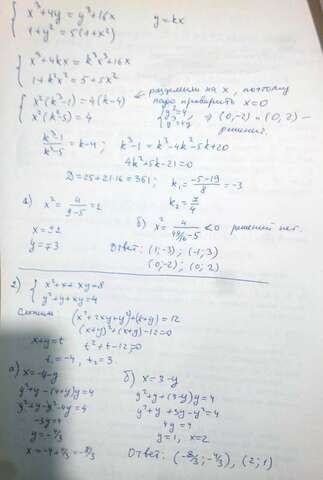 x³+4y = y³+16x
y=kx
1+y² = 5(1+x²)
x³+4kx = k³x³+16x
1+k²x² = 5+5x²
x²(k³-1) = 4(k-4)
x²(k²-5) = 4
разделили на x, поэтому
надо проверить x=0
y²=4
y³=4y
⇒ (0,-2) и (0,2) -
решения.
(k³-1)/(k²-5) = k-4; k³-1 = k³-4k²-5k+20
4k²+5k-21=0
D=25+21·16=361; k₁ = (-5-19)/8 = -3
k₂ = 7/4
а) x² = 4/(9-5) =
б) x² = 4/(49/16-5) <0 решений нет.
Ответ: (1;-3); (-1;3)
(0;-2); (0; 2)
2) x²+x+xy=8
y²+y+xy=4
(x²+2xy+y²)+(x+y)=12
(x+y)²+(x+y)-12=0
x+y=t t²+t-12=0
t₁=-4, t₂=3.
а) x=-4-y
б) x=3-y
y²+y-(4+y)y=4
y²+y+(3-y)y=4
y²+y-y²-4y=4
y²+y+3y-y²=4
-3y=4
4y=4
y=-4/3
y=1, x=2
x=-4+4/3=-8/3
Ответ: (-8/3;-4/3), (2;1)